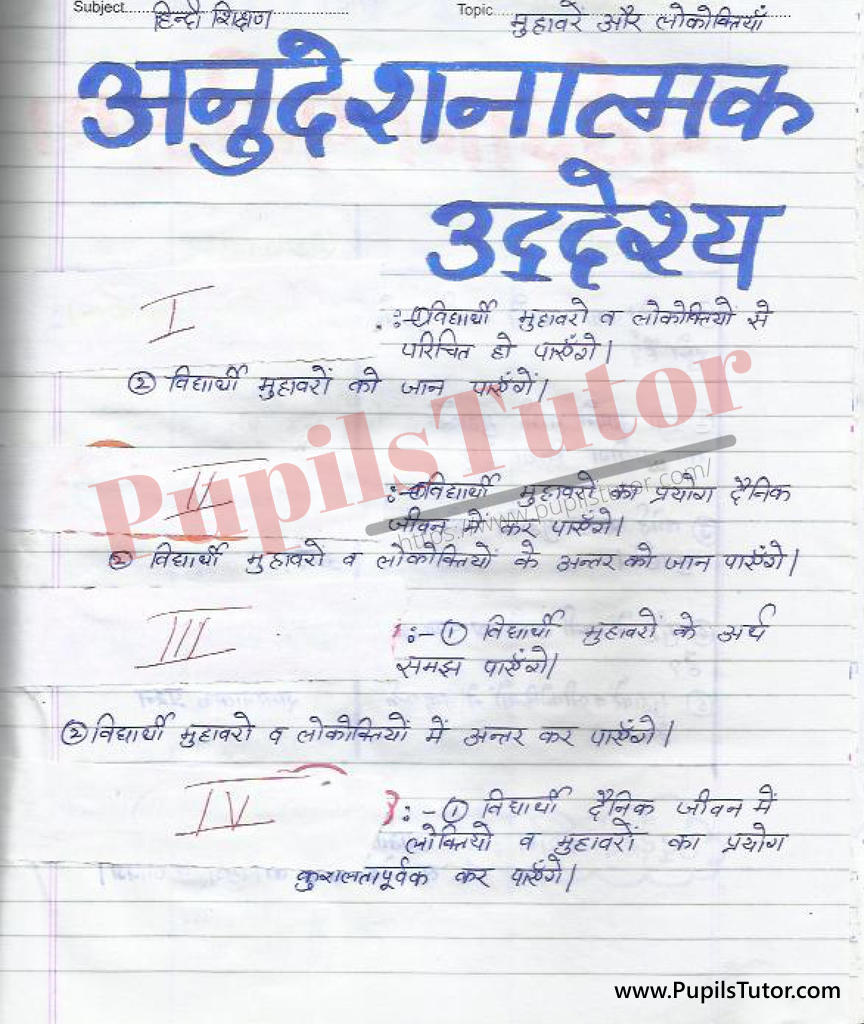 Subject हिन्दी शिक्षण Topic मुहावरें और लोकोक्तियाँ
अनुदेशनात्मक
उद्देश्य
I :- ① विद्यार्थी मुहावरो व लोकोक्तियों से
परिचित हो पाएँगे।
② विद्यार्थी मुहावरों को जान पाएँगें।
II :- ① विद्यार्थी मुहावरे का प्रयोग दैनिक
जीवन में कर पाएँगे।
② विद्यार्थी मुहावरो व लोकोक्तियों के अन्तर को जान पाएँगे।
III :- ① विद्यार्थी मुहावरो के अर्थ
समझ पाएँगे।
② विद्यार्थी मुहावरो व लोकोक्तियों में अन्तर कर पाएँगे।
IV :- ① विद्यार्थी दैनिक जीवन में
लोक्तियो व मुहावरों का प्रयोग
कुशलतापूर्वक कर पाएँगे।
PupilsTutor
https://www.pupilstutor.com/
www.PupilsTutor.com